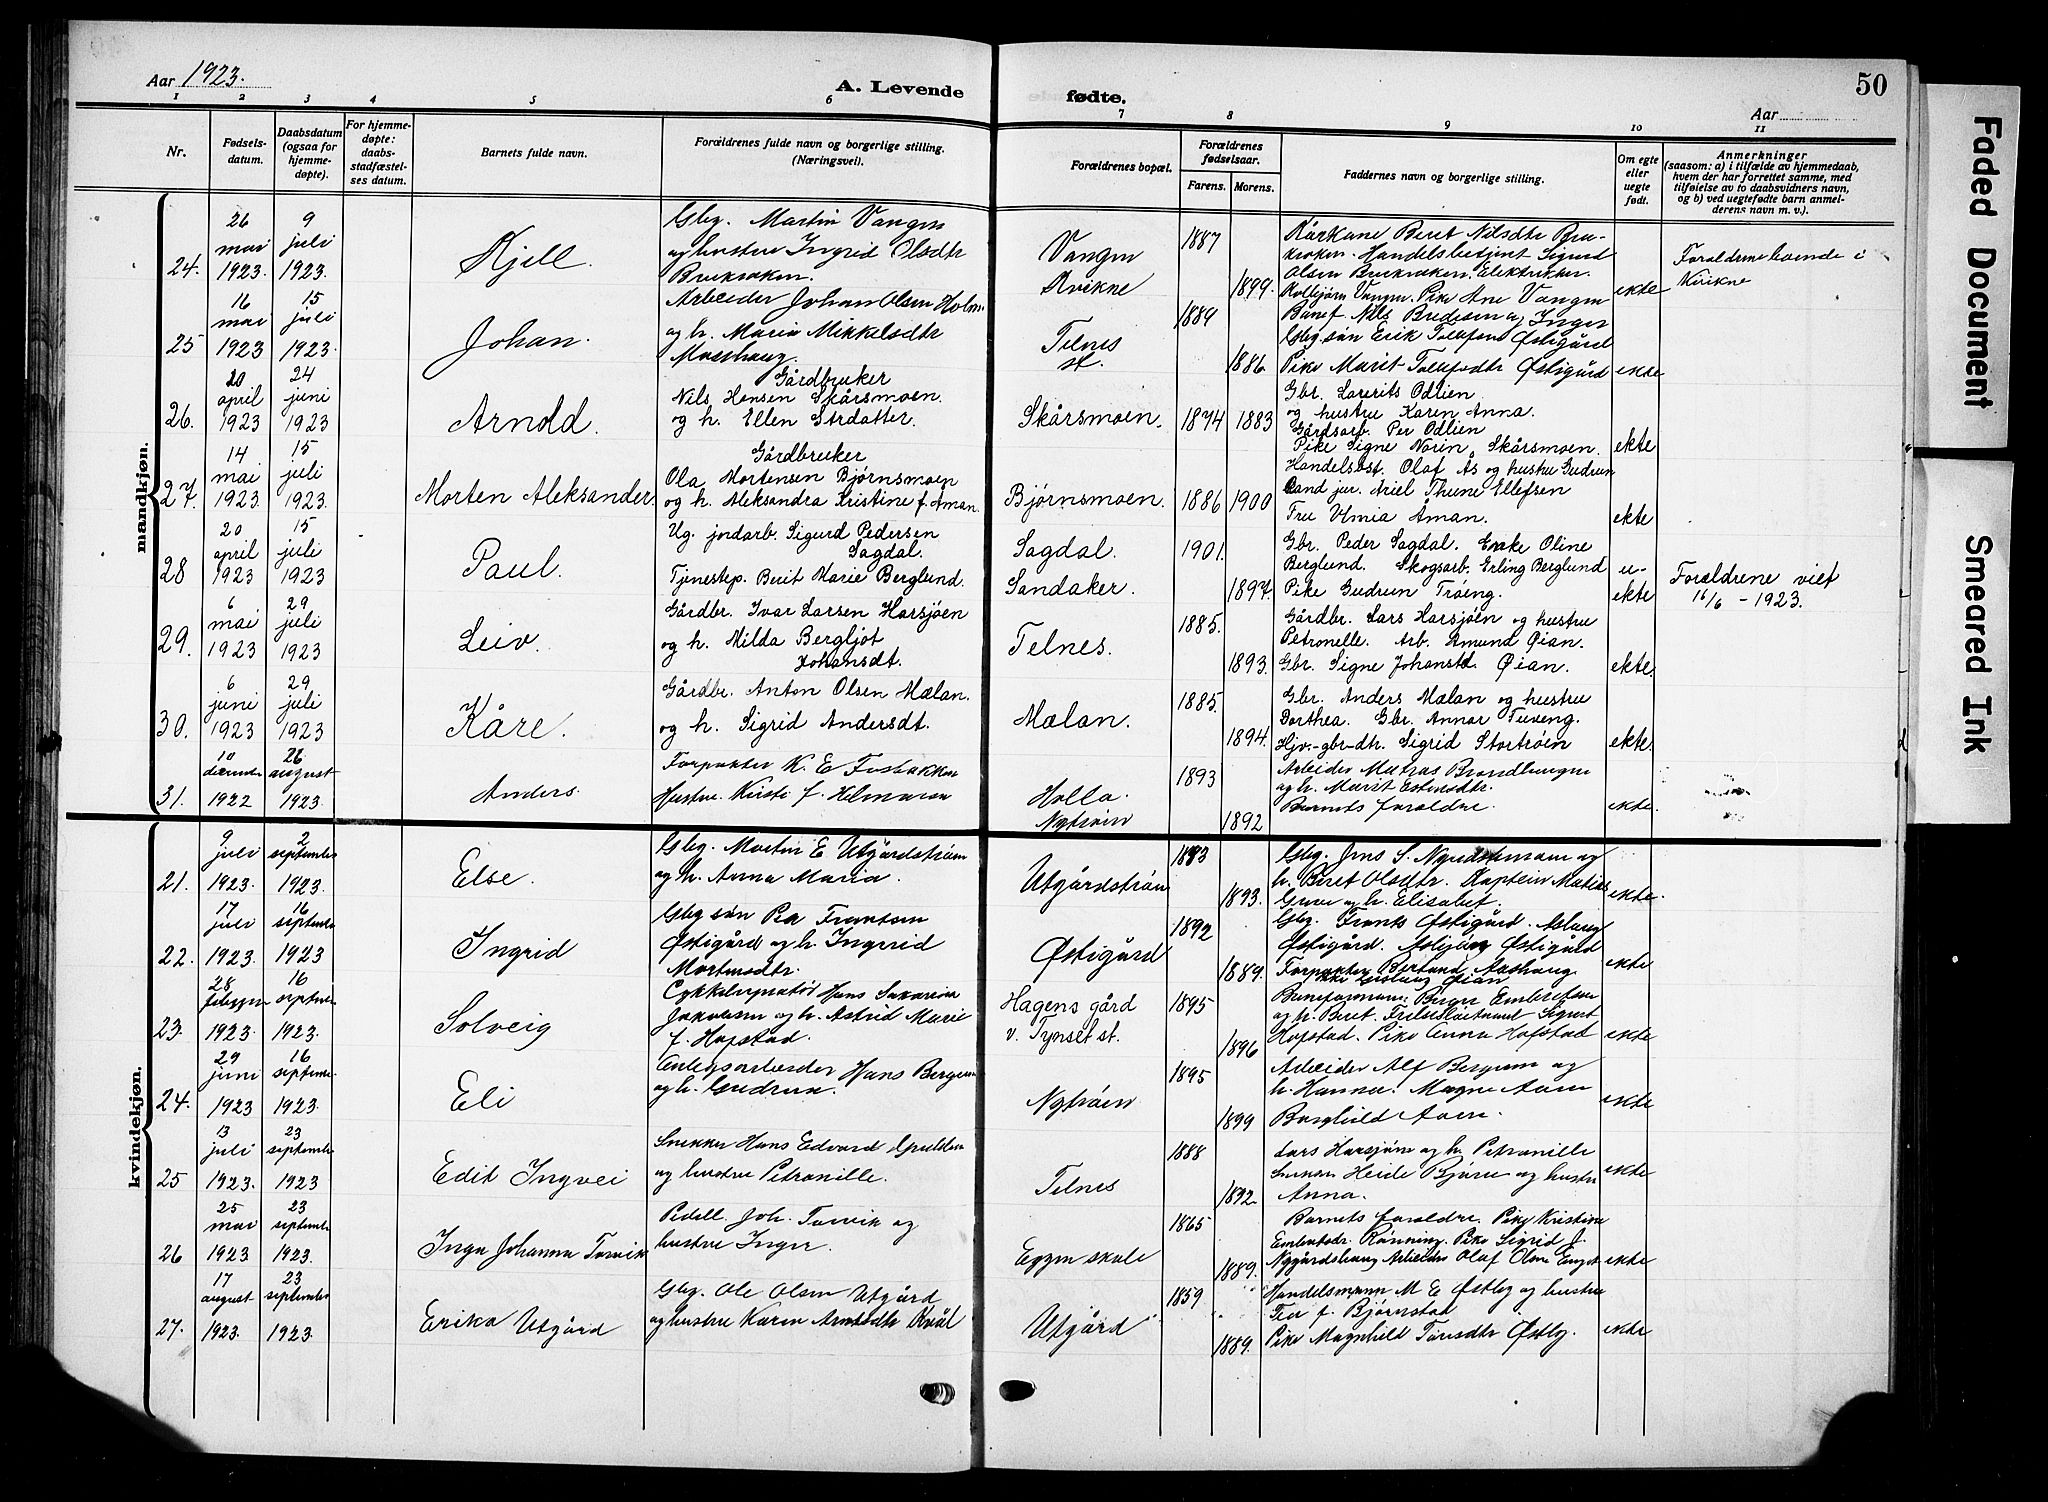 Aar 1923.
A. Levende
fødte.
50
Aar
1 2 3 4 5 6 7 8 9 10 11
Nr.
Fødsels-
datum.
Daabsdatum
(ogsaa for
hjemme-
døpte).
For hjemme-
døpte:
daabs-
stadfæstel-
ses datum.
Barnets fulde navn.
Forældrenes fulde navn og borgerlige stilling.
(Næringsvei).
Forældrenes bopæl.
Forældrenes
fødselsaar.
Farens. Morens.
Faddernes navn og borgerlige stilling.
Om egte
eller
uegte
født.
Anmerkninger
(saasom: a) i tilfælde av hjemmedaab,
hvem der har forrettet samme, med
tilføielse av to daabsvidners navn,
og b) ved uegtefødte barn anmel-
derens navn m. v.).
mandkjøn.
24.
26
mai
1923.
9
juli
1923.
Kjell.
Gbg. Martin Vangen
og hustru Ingrid Olsdtr
Brukroken.
Vangen
Kvikne
1887
1899.
Kårkone Beret Nilsdtr Bru-
kroken. Handelsbetjent Sigurd
Olsen Brukroken. Elektriker
Kolbjørn Vangen. Pike Ane Vangen
ekte
Foreldrene boende i
Kvikne
25
16
mai
1923
15
juli
1923.
Johan.
Arbeider Johan Olsen Holm
og h. Maria Mikkelsdtr
Moshaug.
Telnes
st.
1889
1886.
Banef. Nils Bredesen og Inger
Gbg. søn Erik Tollefsen Østigård
Pike Marit Tollefsdtr Østigård
ekte
26.
20
april
1923
24
juni
1923
Arnold.
Gårdbruker
Nils Hansen Skårsmoen.
og h. Ellen Strdatter.
Skårsmoen.
1874 1883
Gbr. Laurits Odlien
og hustru Karen Anna.
Gårdsarb. Per Odlien
Pike Signe Norin, Skårsmoen.
ekte
27.
14
mai
1923
15
juli
1923.
Morten Aleksander.
Gårdbruker
Ola Mortensen Bjørnsmoen
og h. Aleksandra Kristine f. Åman.
Bjørnsmoen.
1886 1900
Handelsbst. Olaf Ås og hustru Gudrun
Cand jur. Ariel Thune Ellefsen
Fru Ulmia Åman.
ekte
28
20
april
1923
15
juli
1923
Paul.
Ug. jordarb. Sigurd Pedersen
Sagdal.
Tjenestep. Berit Marie Berglund.
Sagdal.
Sandaker.
1901.
1897.
Gbr. Peder Sagdal. Enke Oline
Berglund. Skogsarb. Erling Berglund
Pike Gudrun Trøeng.
u-
ekte
Forældrene viet
16/6 - 1923.
29.
6
mai
1923
29
juli
1923
Leiv.
Gårdbr. Ivar Larsen Harsjøen
og h. Milda Bergljot
Johansdt.
Telnes.
1885.
1893.
Gårdbr. Lars Harsjøen og hustru
Petronelle. Arb. Amund Øian.
Gbr. Signe Johansd. Øian.
ekte.
30.
6
juni
1923
29
juli
1923
Kåre.
Gårdbr. Anton Olsen Mælan.
og h. Sigrid Andersdt.
Mælan.
1885.
1894.
Gbr. Anders Mælan og hustru
Dorthea. Gbr. Annar Tuveng.
Hjv.-gbr-dtr. Sigrid Stortrøen
ekte.
31.
10
1922
26
august
1923.
Anders
Forpakter K. E. Fosbakken
Hustru Kirsti f.
Holla.
Nytrøien
1893
1892
Arbeider Matias Brandhaugen
og h. Marit Estensdtr.
Barnets foreldre.
ekte.
kvindekjøn.
21.
9
juli
1923.
2
september
1923.
Else.
Gbg. Martin E Utgårdstrøen
og h. Anna Maria.
Utgårdstrøen
1883
1893.
Gbg. Jens S. og
h. Beret Olsdtr. Kaptein Matias
og h. Elisabet.
ekte.
22.
17
juli
1923.
16
september
1923
Ingrid
Gbg søn Per Frantsen
Østigård og h. Ingrid
Mortensdtr.
Østigård
1892
1889.
Gbg. Frants Østigård. Aslaug
Østigård. Asbjørg Østigård
Forpakter Aashaug.
Øian
ekte
23.
28
1923
16
september
1923.
Solveig
Hans
Jakobsen og h. Astrid Marie
f. Hofstad.
Hagens gård
v. Tynset st.
1895
1896
Baneformann Birger Embretsen
og h. Beret. Sigurd
Hofstad. Pike Anna Hofstad
ekte
24.
29
juni
1923
16
september
1923.
Eli
Anlegsarbeider Hans Bergum
og h. Gudrun.
Nytrøien
1895
1899
Arbeider Alf Bergum og
h. Hanna. Magne Aaen
Borghild Aaen.
ekte
25
13
juli
1923.
23
september
1923
Edit Ingvei
Snekker Hans Edvard
og hustru Petronille.
Telnes
1888
1892.
Lars Harsjøen og h. Petronille
Snekker Heide Bjørn og hustru
Anna.
ekte
26
25
mai
1923
23
september
1923.
Inga Johanna Torvik
Pedell. Joh. Torvik og
hustru Inger.
Eggen skole
1865
1889.
Barnets foreldre. Pike Kristine
Embretsdr. Rønning. Pike Sigrid J.
Nygårdshaug Arbeider Olaf Olsen Enget
ekte
27.
17
august
1923.
23
september
1923.
Erika Utgård
Gbg. Ole Olsen Utgård
og hustru Karen Arnesdtr Kvål
Utgård
1859
1889.
Handelsmann M E Østby og hustru
Tea f. Bjørnstad
Pike Magnhild Toresdtr Østby.
ekte
Faded Document
Smeared Ink